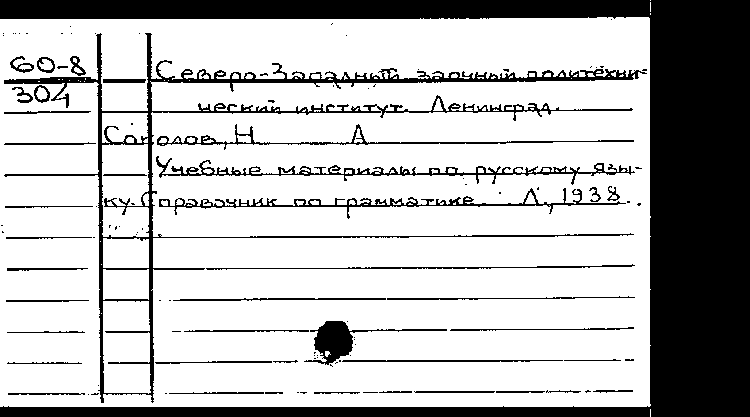 60-8 Северо-Западный заочный политехни-
304
ческий институт. Ленинград.
Соколов, Н А
Учебные материалы по русскому язы-
ку. Справочник по грамматике. Л., 1938.